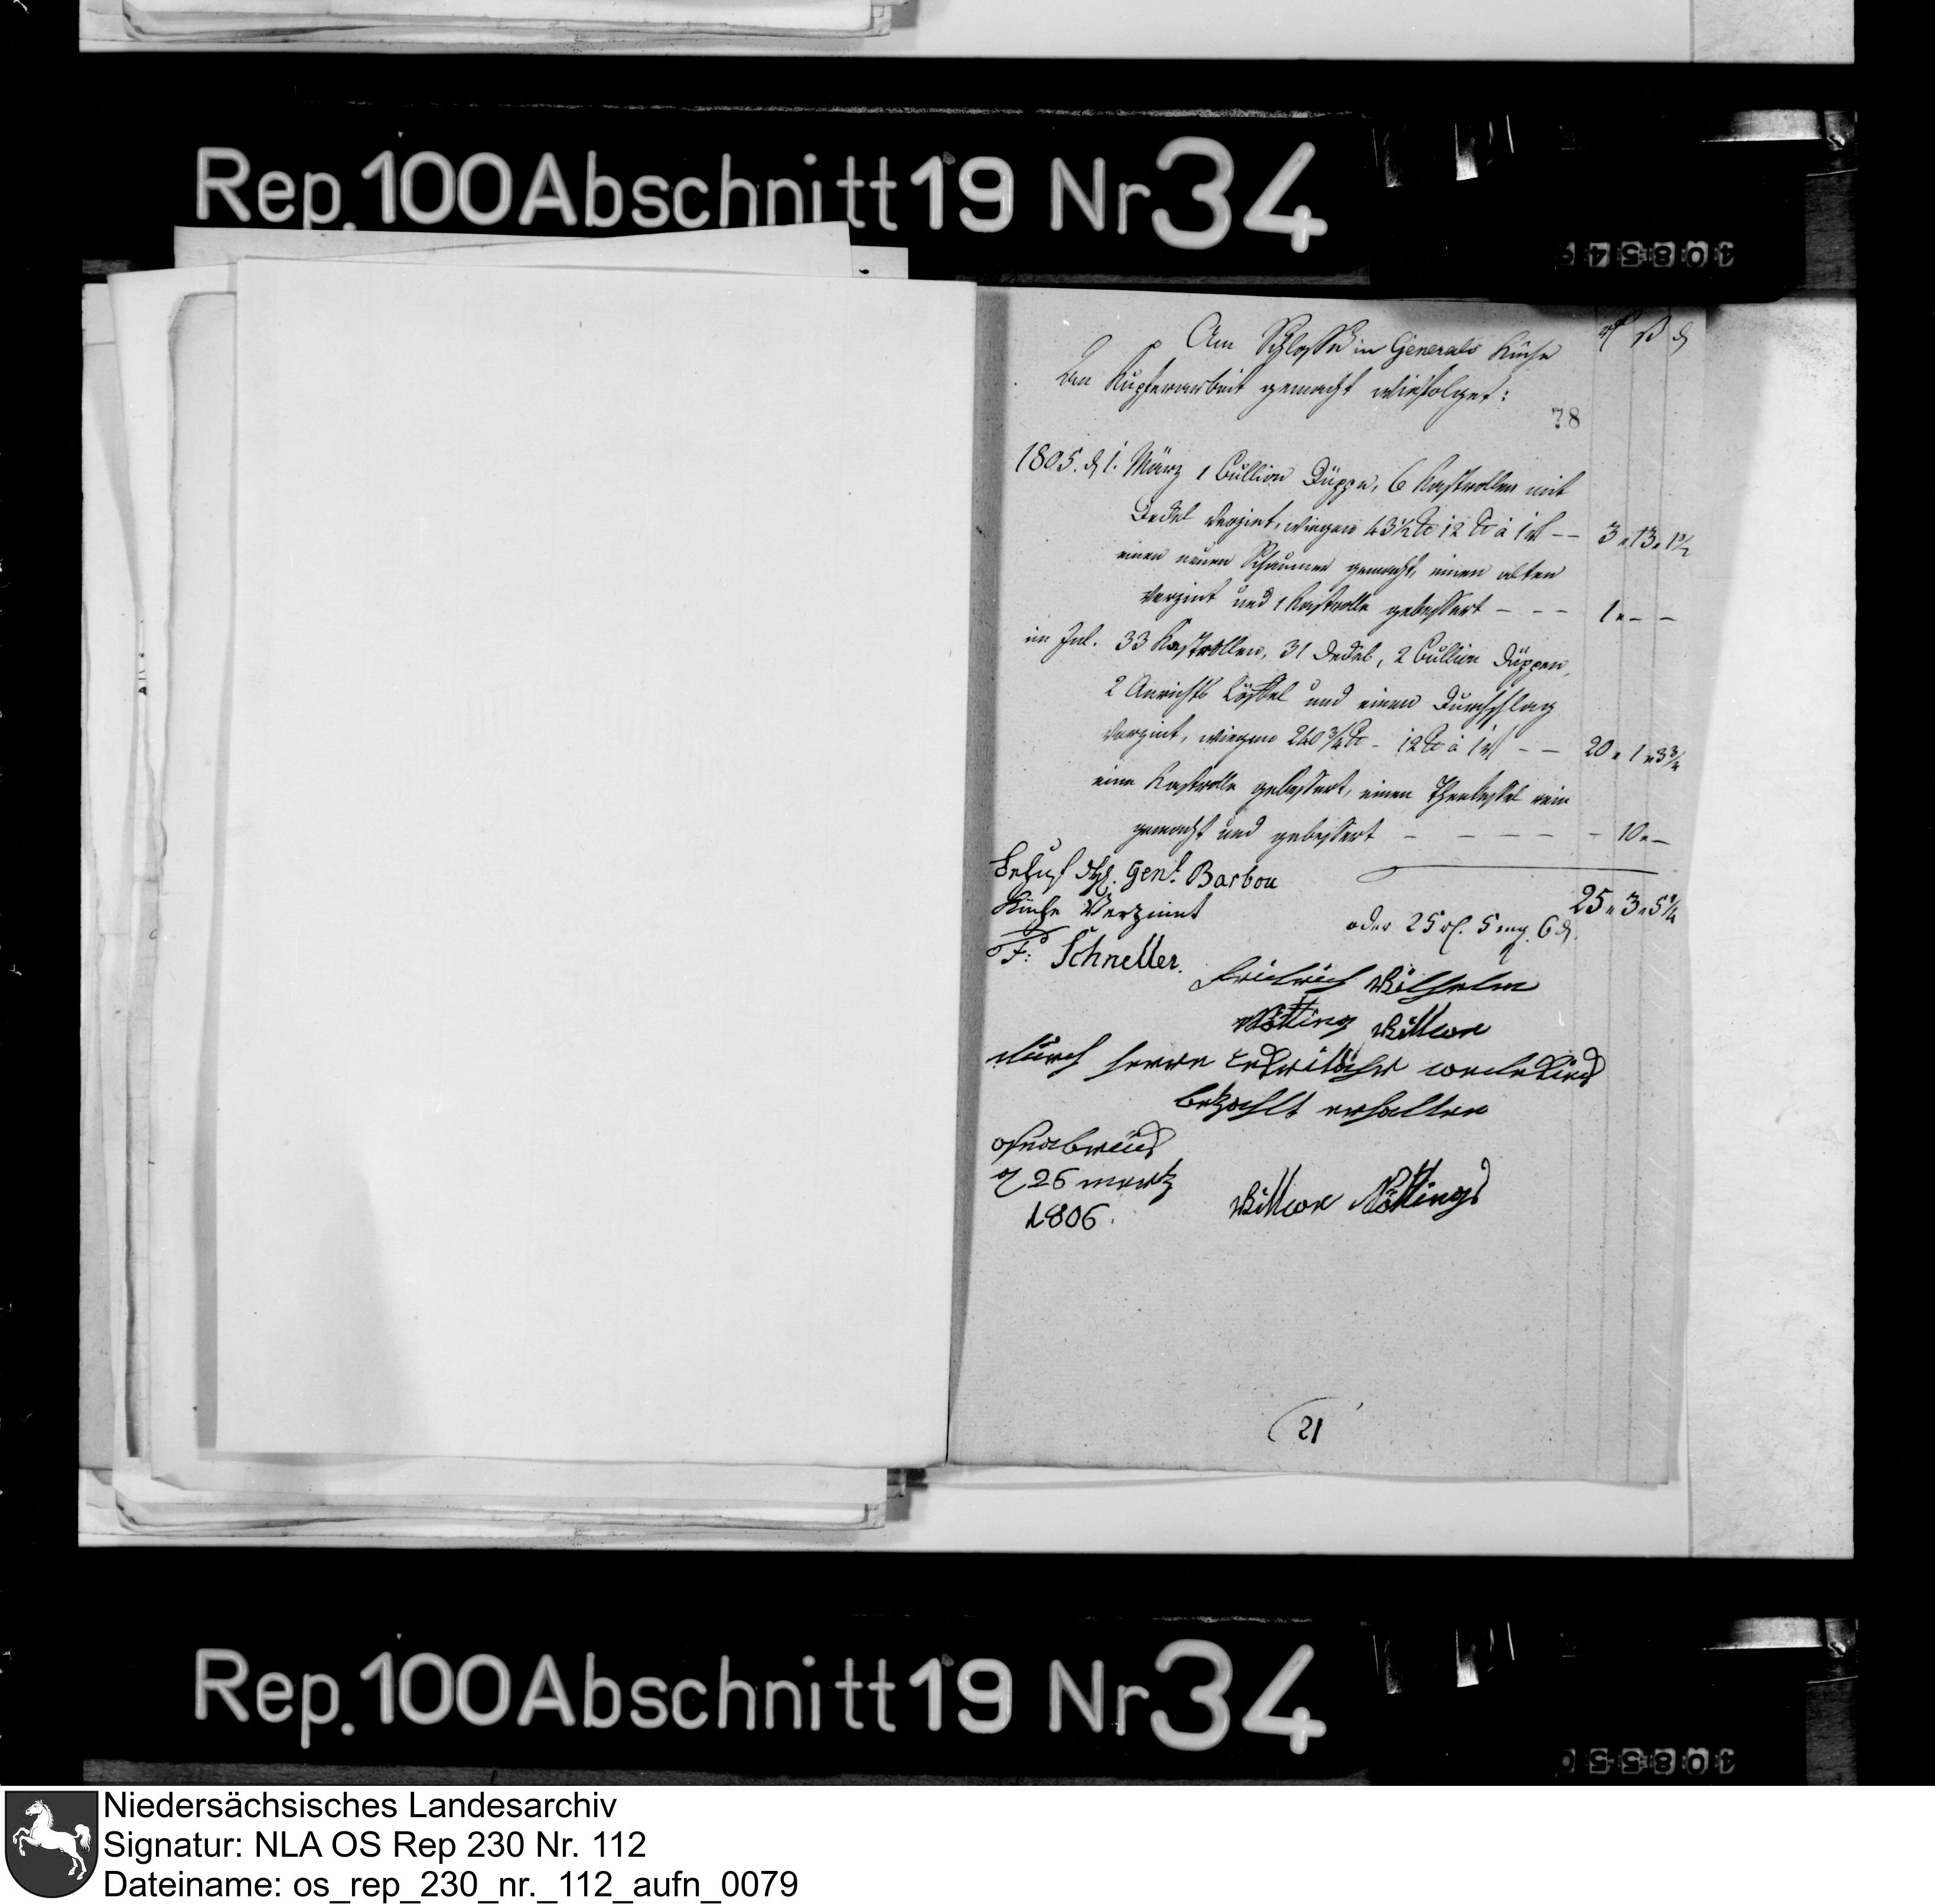 Rep. 100 Abschnitt 19 Nr 34
40854
rt ß d
Am Schloße in Generals Küche
an Kupferarbeit gemacht wie folget:
78
1805. d 1. März 1 Bullion Düppe, 6 Kastrollen mit
Deckel verzint, wiegen 43 1/2 ℔ 12 ℔ à 1 rt -- 3 " 13 " 1 1/2
einen neuen Schaumer gemacht, einen alten
verzint und 1 Kastrolle gebessert - - - 1 " - -
im Jul. 33 Kastrollen, 31 Deckel, 2 Bullion Düppen,
2 Anrichts Löffel und einen Durchschlag
verzint, wiegen 240 3/4 ℔ - 12 ℔ à 1 rt - - 20 " 1 " 3 3/4
eine Kastrolle gebessert, einen Theekessel rein
gemacht und gebessert - - - - - - 10 " -
Behuf des Genl. Barbou
Küche Verzinnt
F: Schneller.
25 " 3 " 5 1/4
oder 25 rt. 5 mg. 6 d.
Friedrich Wilhelm
Nölting Wittwe
durch Herrn wedekind
bezahlt erhalten
osnabrück
d 26 mertz
1806.
Wittwe Nöltings
21
Rep. 100 Abschnitt 19 Nr 34
408550
Niedersächsisches Landesarchiv
Signatur: NLA OS Rep 230 Nr. 112
Dateiname: os_rep_230_nr._112_aufn_0079